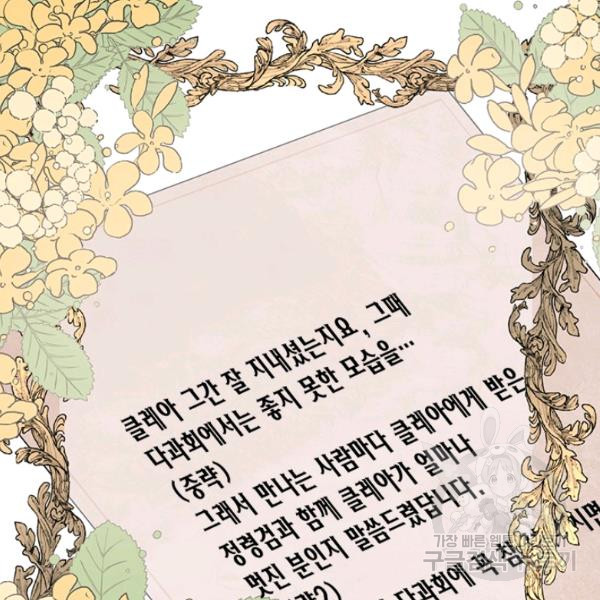 클레아 그간 잘 지내셨는지요, 그때
다과회에서는 좋지 못한 모습을...
(중략)
그래서 만나는 사람마다 클레아에게 받은
정령검과 함께 클레아가 얼마나
멋진 분인지 말씀드렸답니다.
다과회에 꼭
시면
가장 빠른